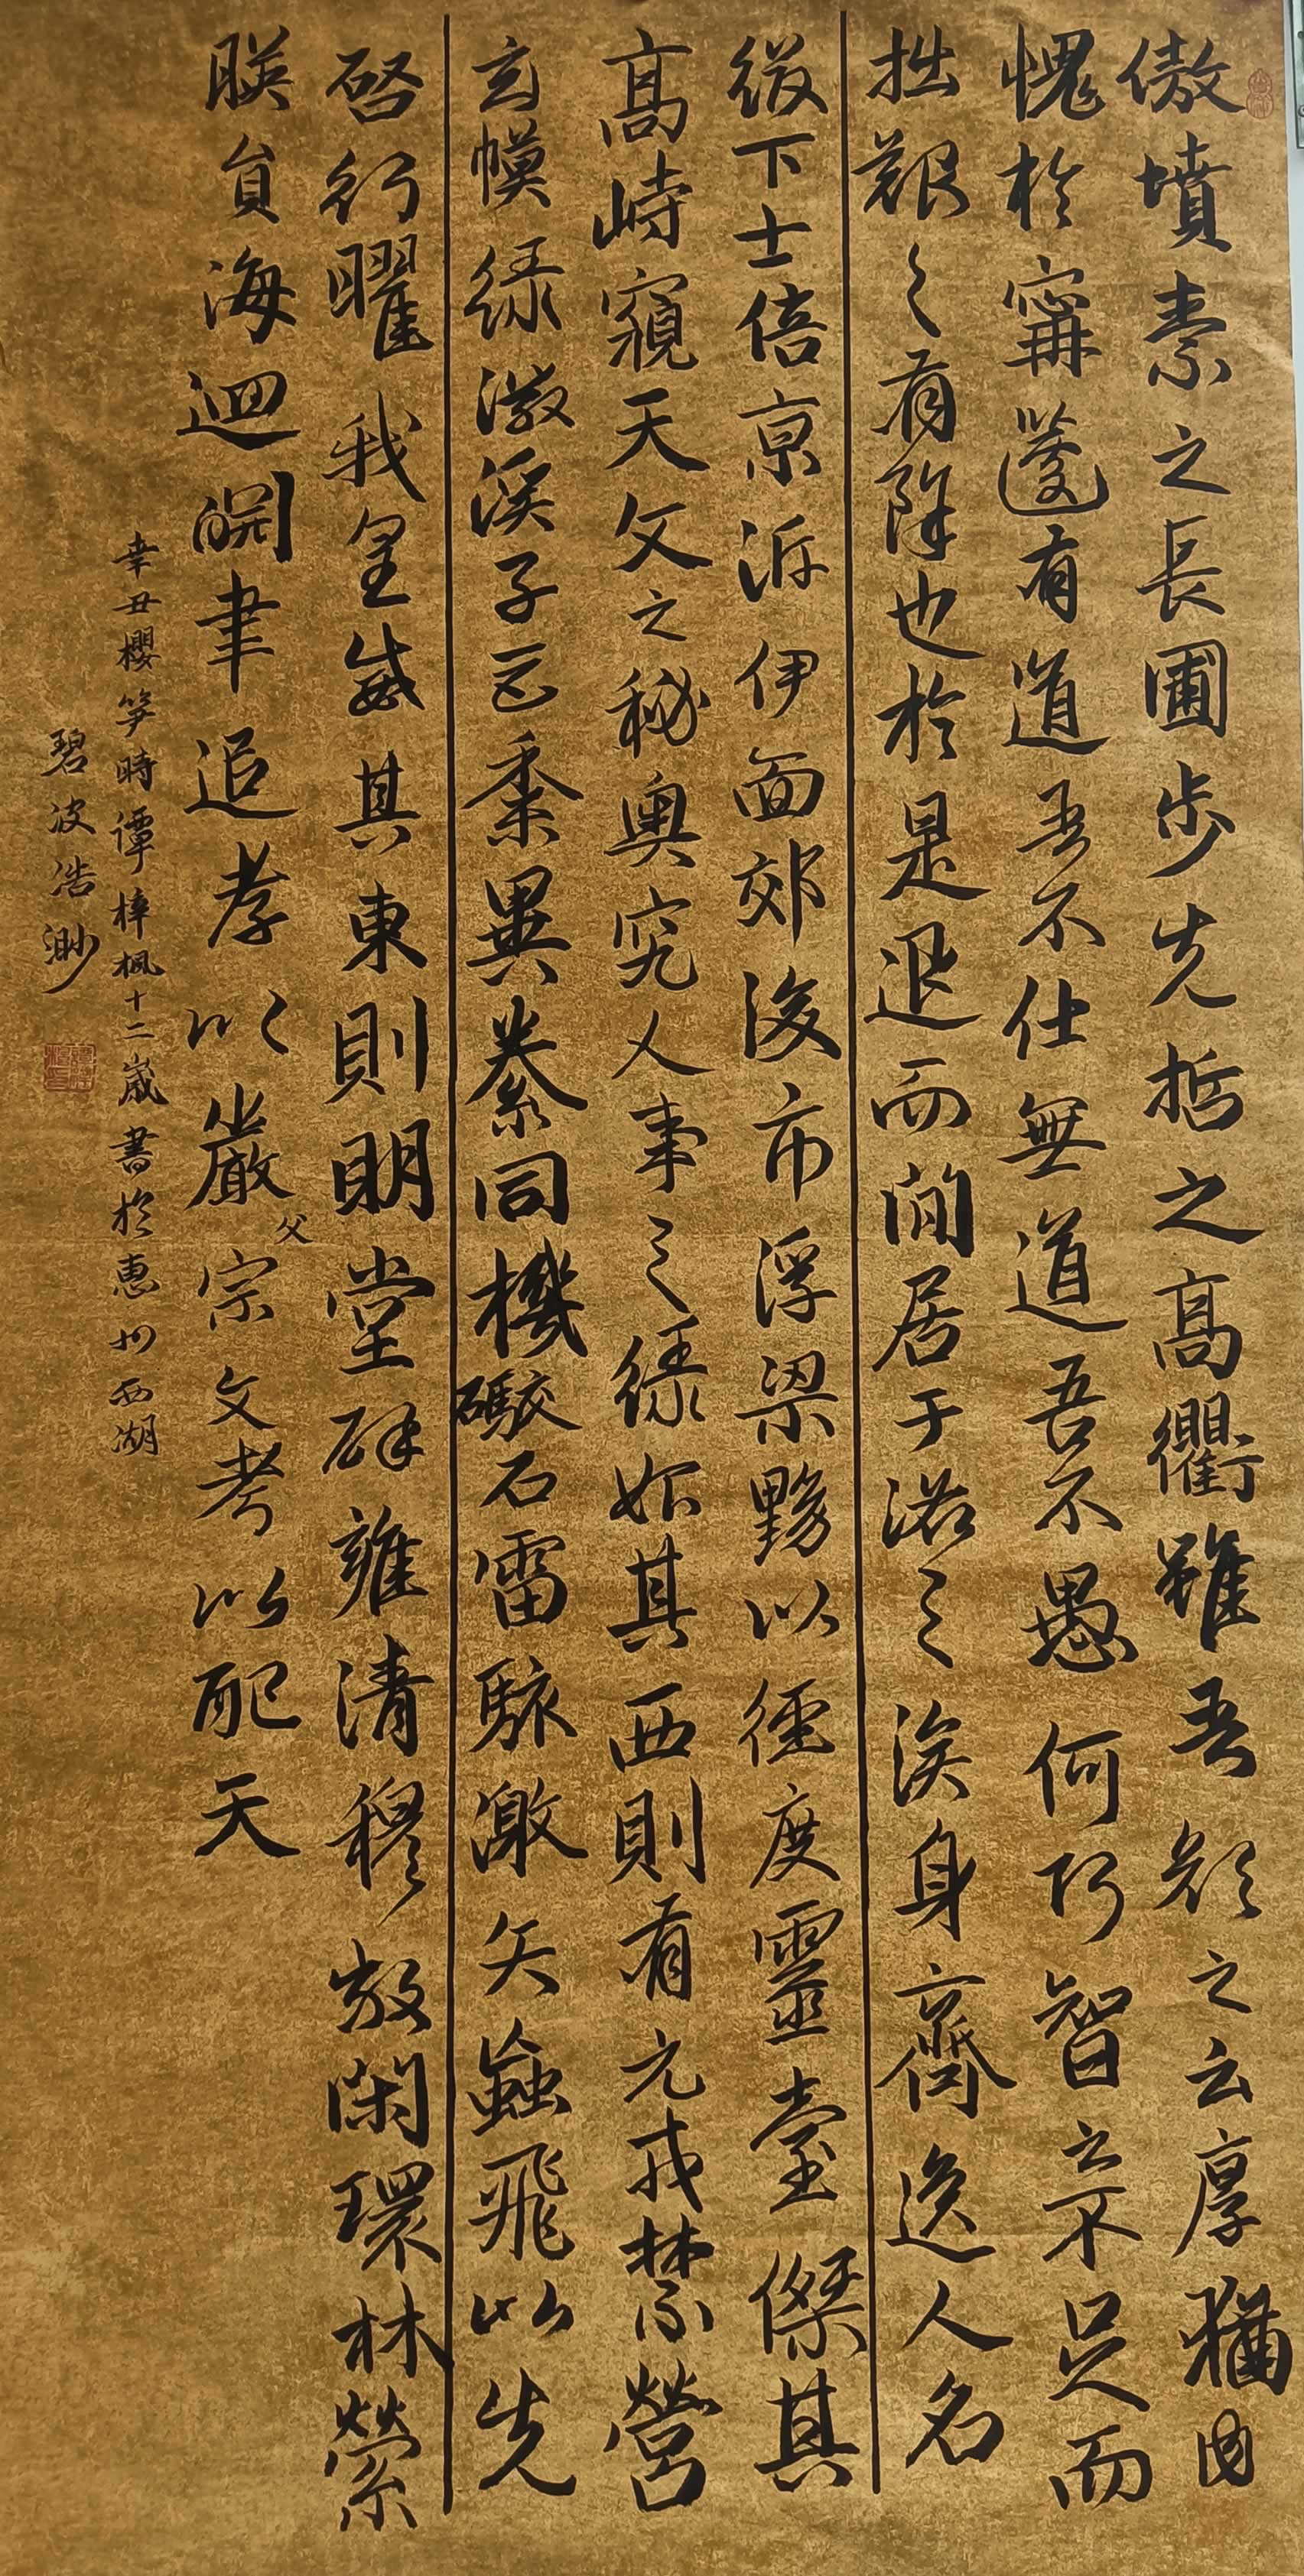 傲墳素之長圃步先哲之高衢雖吾顏之云厚猶内
愧於寗蘧有道吾不仕無道吾不愚何巧智之不足而
拙艱之有餘也於是退而閒居于洛之涘身齊逸人名
綴下士倍京泝伊面郊後市浮梁黝以徑度靈臺傑其
高峙窺天文之秘奥究人事之終始其西則有元戎禁營
玄幙緑徽溪子巨黍異絭同機礮石雷駭激矢蝱飛以先
啓行曜我皇威其東則明堂辟雍清穆敞閑環林縈
暎負海迴淵聿追孝以嚴父宗文考以配天
辛丑櫻筍時譚梓楓十二歲書於惠州西湖
碧波浩渺